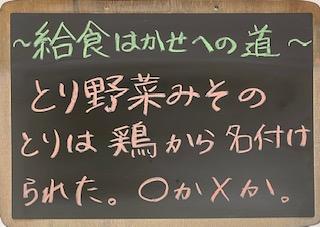 ～給食はかせへの道～
とり野菜みその
とりは鶏から名付け
られた。〇か×か。